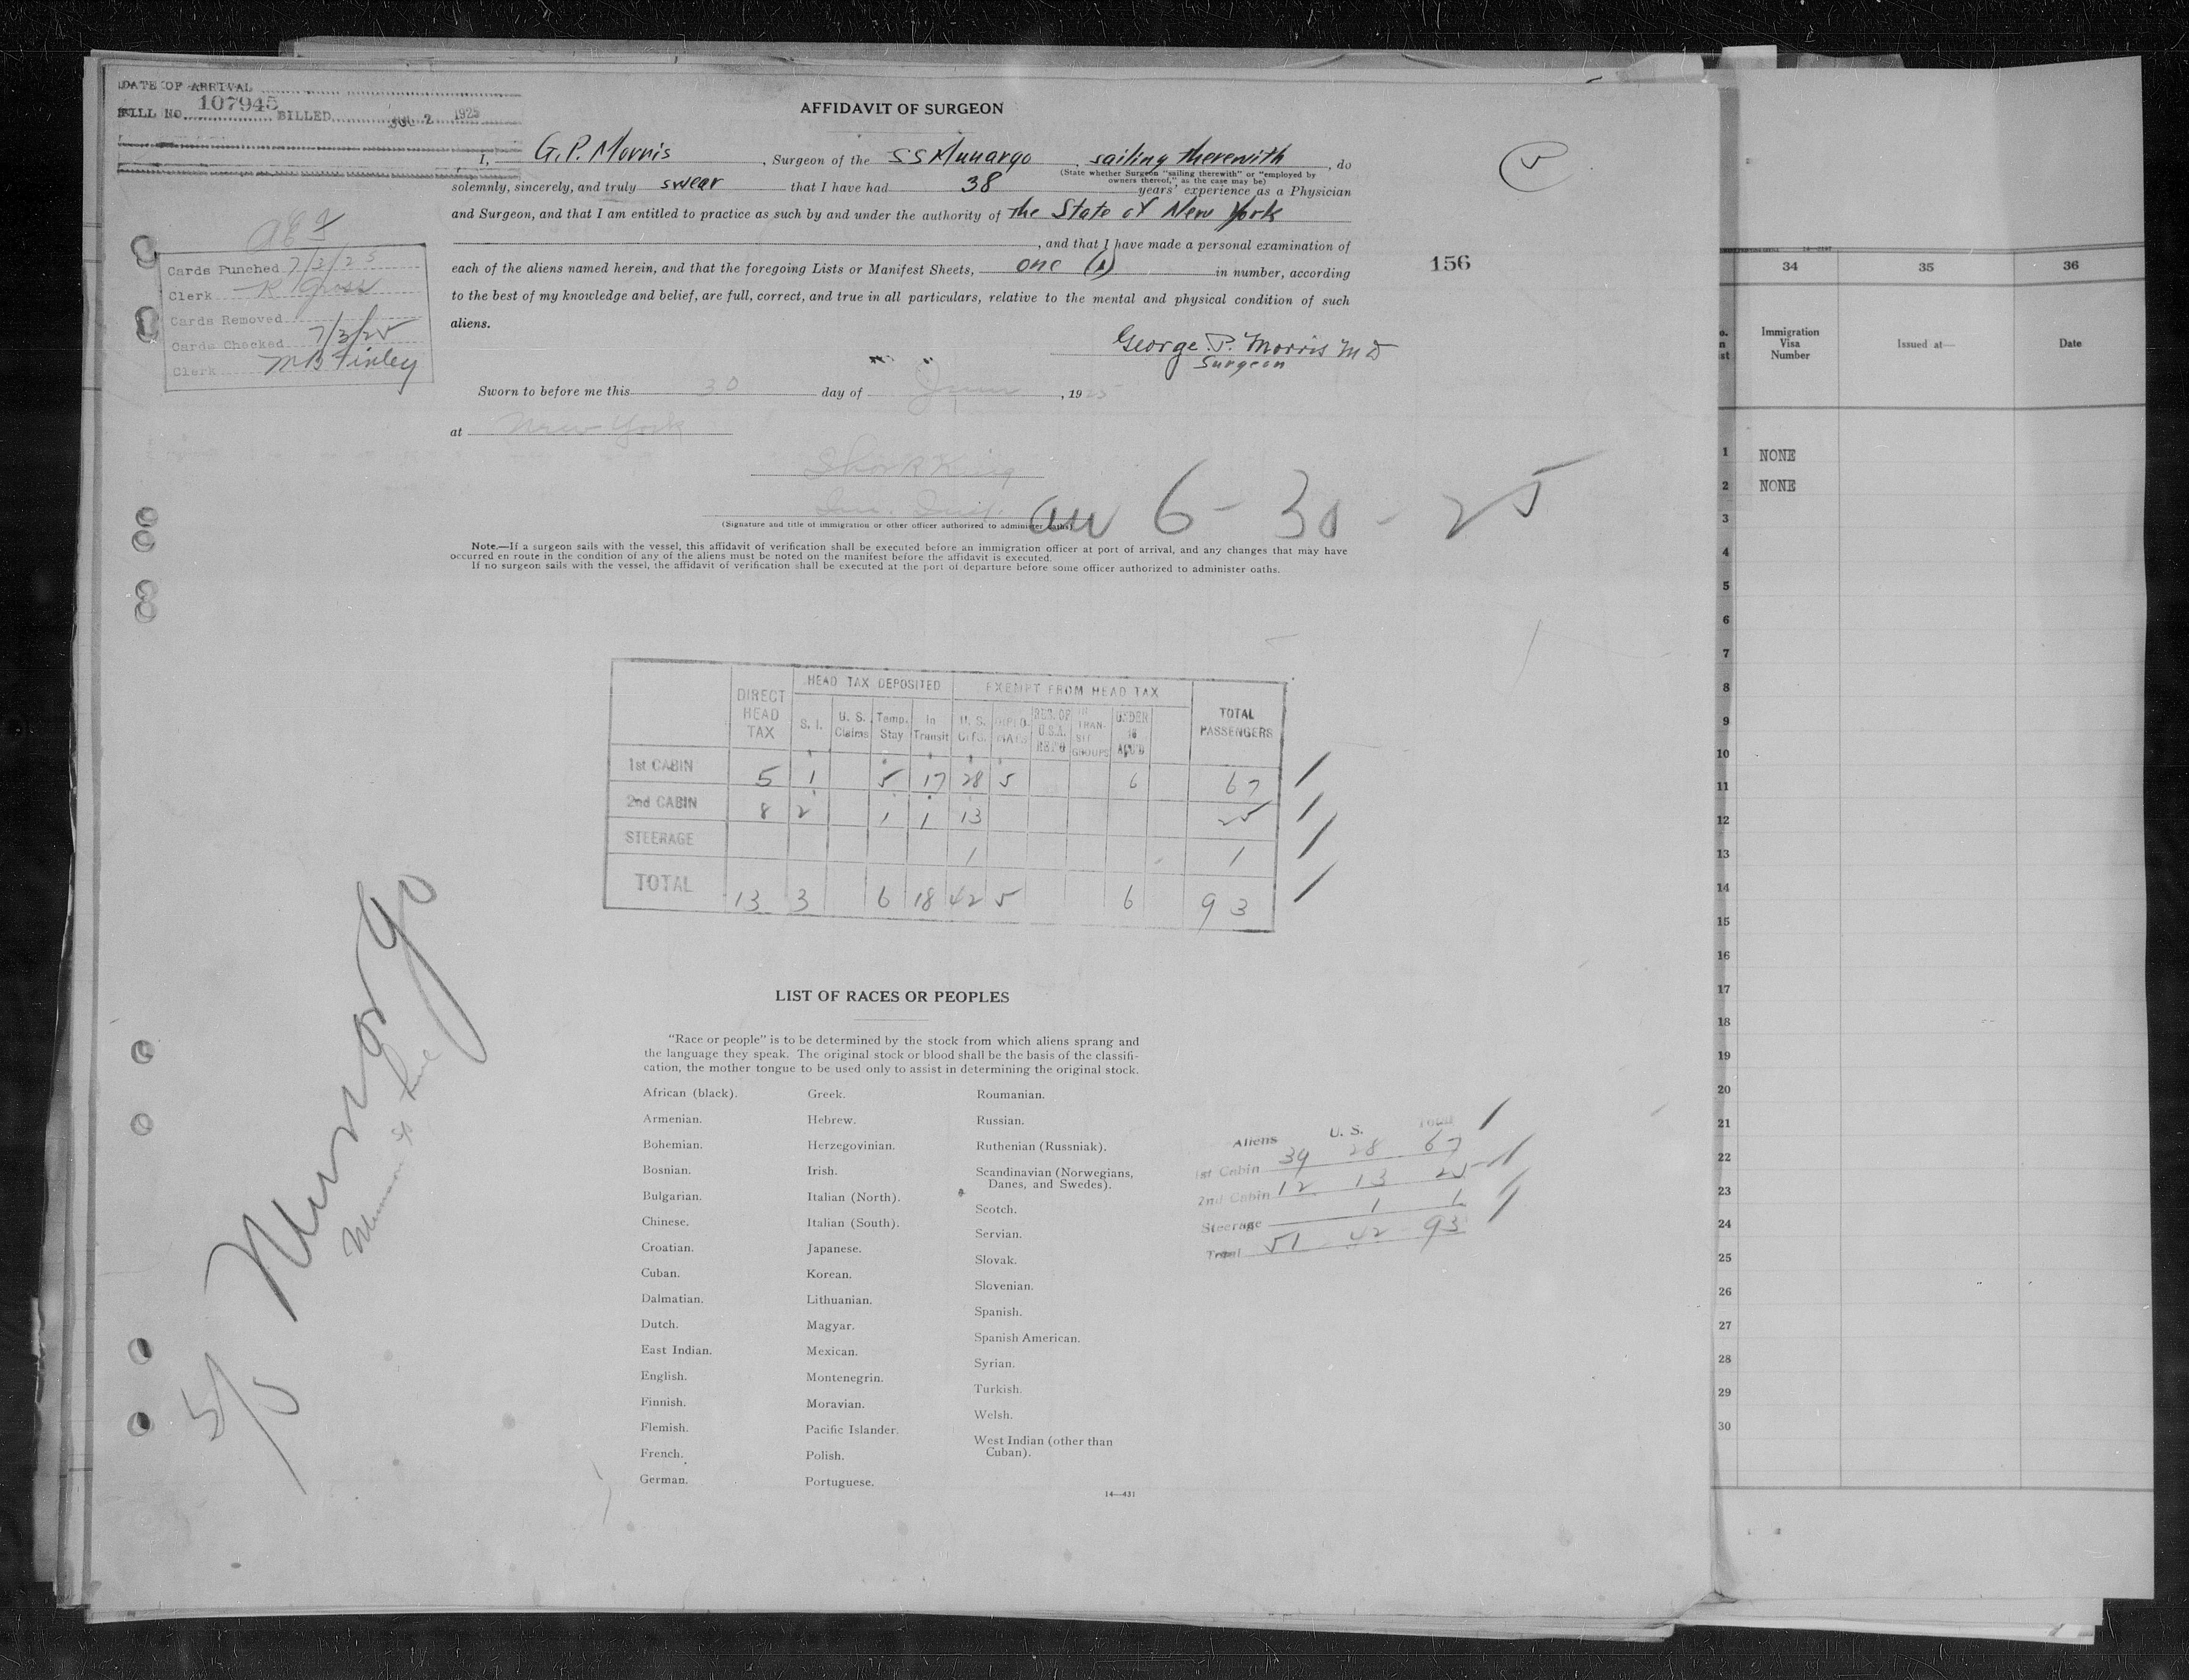 DATE OF ARRIVAL
BILL NO. 107945 BILLED JUL 2 1925
AFFIDAVIT OF SURGEON
I, G. P. Morris, Surgeon of the SS Munargo, sailing therewith, do
(State whether Surgeon "sailing therewith" or "employed by
owners thereof," as the case may be)
solemnly, sincerely, and truly swear that I have had 38 years' experience as a Physician
and Surgeon, and that I am entitled to practice as such by and under the authority of the State of New York
, and that I have made a personal examination of
each of the aliens named herein, and that the foregoing Lists or Manifest Sheets, one (1) in number, according
to the best of my knowledge and belief, are full, correct, and true in all particulars, relative to the mental and physical condition of such
aliens.
George P. Morris M D
Surgeon
Sworn to before me this 30 day of June, 1925
at New York
King
(Signature and title of immigration or other officer authorized to administer oaths)
6-30-25
Note.—If a surgeon sails with the vessel, this affidavit of verification shall be executed before an immigration officer at port of arrival, and any changes that may have
occurred en route in the condition of any of the aliens must be noted on the manifest before the affidavit is executed.
If no surgeon sails with the vessel, the affidavit of verification shall be executed at the port of departure before some officer authorized to administer oaths.
156
Cards Punched 7/3/25
Clerk R Gross
Cards Removed
Cards Checked 7/3/25
Clerk M B Finley
DIRECT HEAD TAX
HEAD TAX DEPOSITED
EXEMPT FROM HEAD TAX
TOTAL PASSENGERS
S. I. U. S. Claims Temp. Stay In Transit U. S. CITS. DIPLOMATS RES. OF U.S.A. RET'G IN TRANSIT GROUPS UNDER 16 ACC'D
1st CABIN 5 1 5 17 28 5 6 67
2nd CABIN 8 2 1 1 13 25
STEERAGE 1 1
TOTAL 13 3 6 18 42 5 6 93
Munargo
Munson SS Line
5/0
LIST OF RACES OR PEOPLES
"Race or people" is to be determined by the stock from which aliens sprang and
the language they speak. The original stock or blood shall be the basis of the classifi-
cation, the mother tongue to be used only to assist in determining the original stock.
African (black).
Armenian.
Bohemian.
Bosnian.
Bulgarian.
Chinese.
Croatian.
Cuban.
Dalmatian.
Dutch.
East Indian.
English.
Finnish.
Flemish.
French.
German.
Greek.
Hebrew.
Herzegovinian.
Irish.
Italian (North).
Italian (South).
Japanese.
Korean.
Lithuanian.
Magyar.
Mexican.
Montenegrin.
Moravian.
Pacific Islander.
Polish.
Portuguese.
Roumanian.
Russian.
Ruthenian (Russniak).
Scandinavian (Norwegians,
Danes, and Swedes).
Scotch.
Servian.
Slovak.
Slovenian.
Spanish.
Spanish American.
Syrian.
Turkish.
Welsh.
West Indian (other than
Cuban).
14—431
Aliens U. S. Total
1st Cabin 39 28 67
2nd Cabin 12 13 25
Steerage 1 1
Total 51 42 93
34 35 36
Immigration
Visa
Number
Issued at—
Date
1 NONE
2 NONE
3
4
5
6
7
8
9
10
11
12
13
14
15
16
17
18
19
20
21
22
23
24
25
26
27
28
29
30